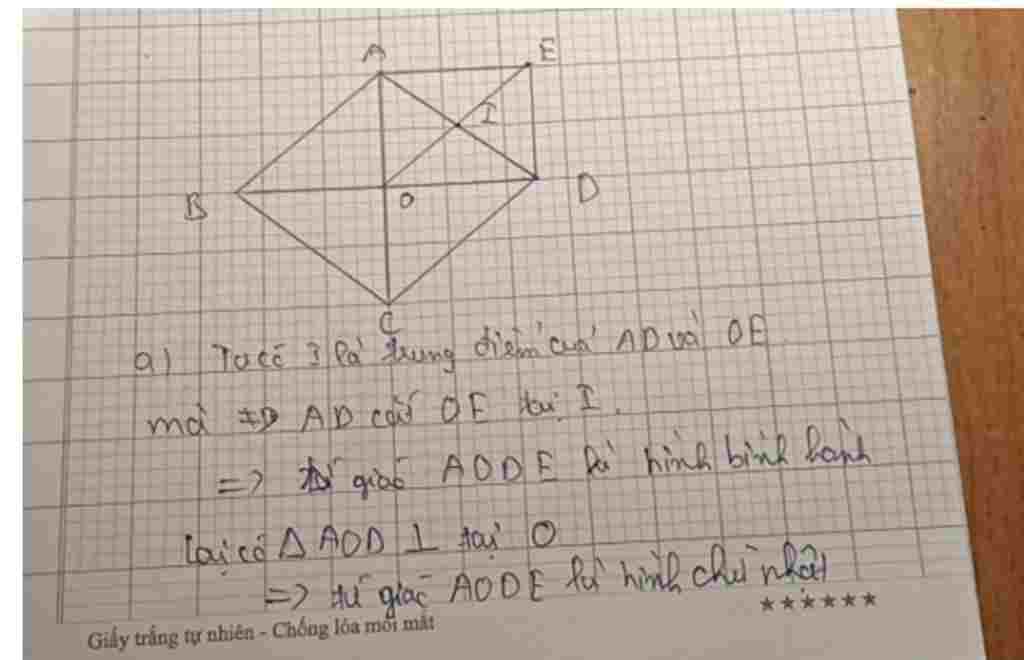 A
E
I
B
O
D
C
a) Ta có I là trung điểm của AD và OE
mà AD cắt OE tại I.
=> tứ giác AODE là hình bình hành
Lại có Δ AOD ⊥ tại O
=> tứ giác AODE là hình chữ nhật
★★★★★★
Giấy trắng tự nhiên - Chống lóa mỏi mắt